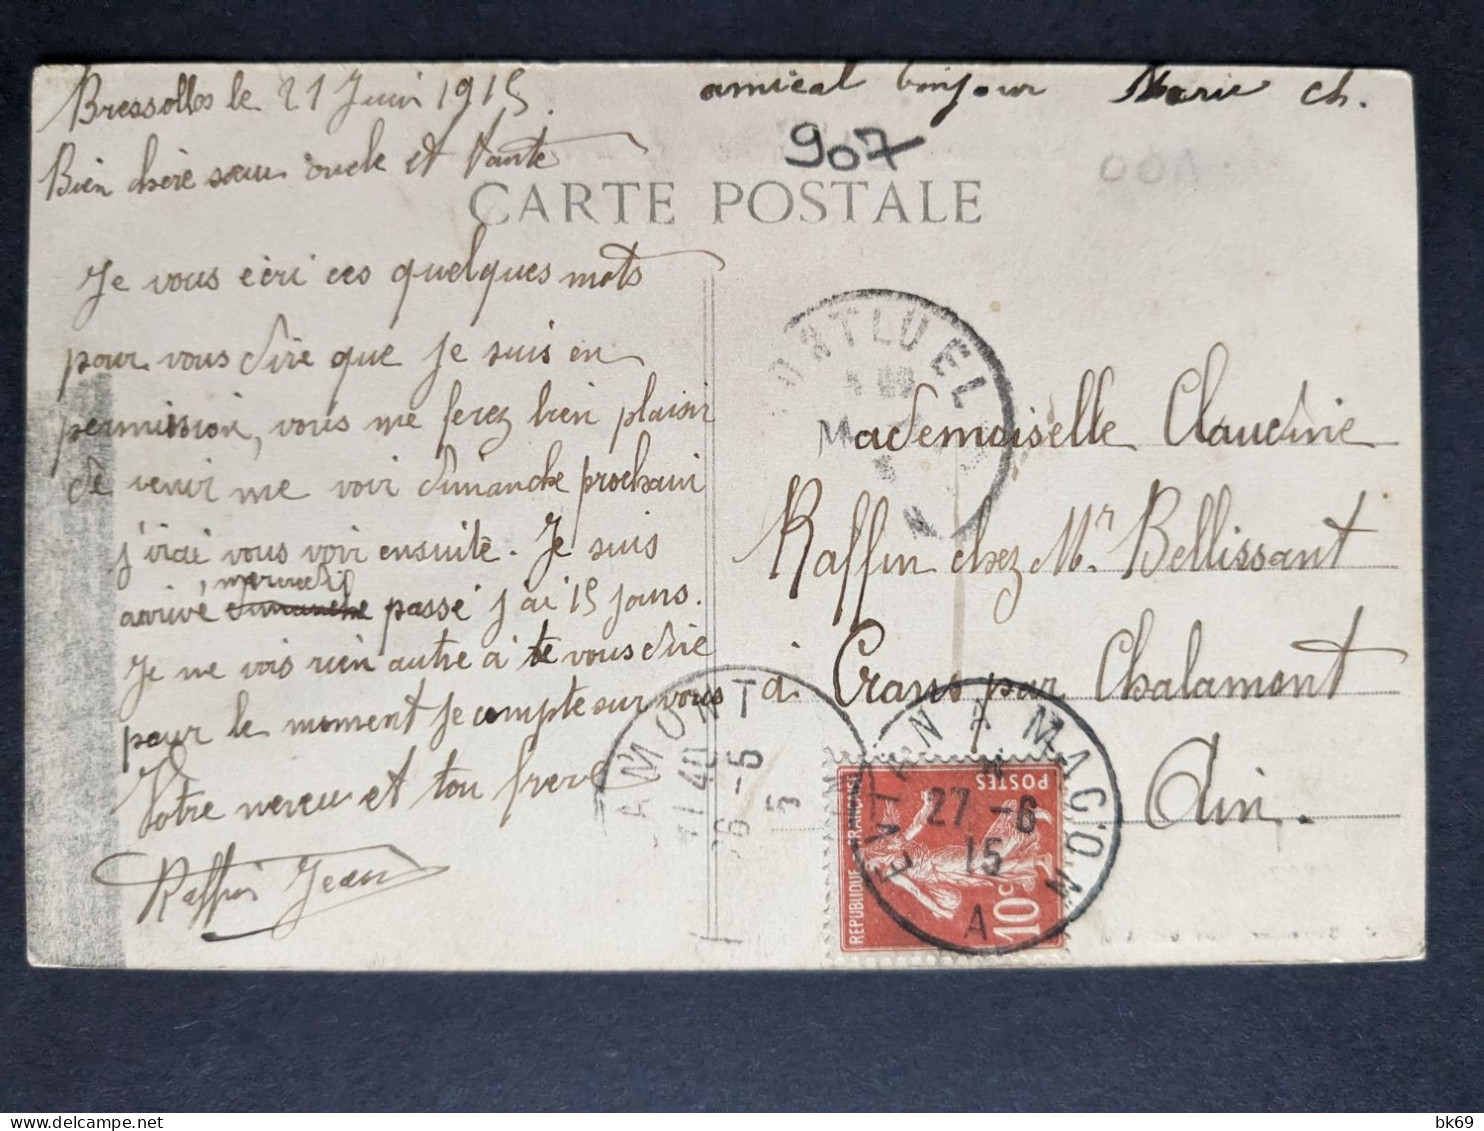 Bressolles le 21 Juin 1915.
amical bonjour Marie ch.
907
Bien chère sœur oncle et tante
CARTE POSTALE
Je vous écri ces quelques mots
pour vous dire que je suis en
permission, vous me ferez bien plaisir
de venir me voir dimanche prochain
j'irai vous voir ensuite. Je suis
mercredi
arrivé dimanche passé j'ai 15 jours.
Je ne vois rien autre à te vous dire
pour le moment je compte sur vous
Votre neveu et ton frere
Raffin Jean
Mademoiselle Claudine
Raffin chez Mr. Bellissant
à Crans par Chalamont
Ain.
MONTLUEL
AMONT
EVIAN A MACON
27 -6
15
A
POSTES
REPUBLIQUE FRANÇAISE
10c
bk69